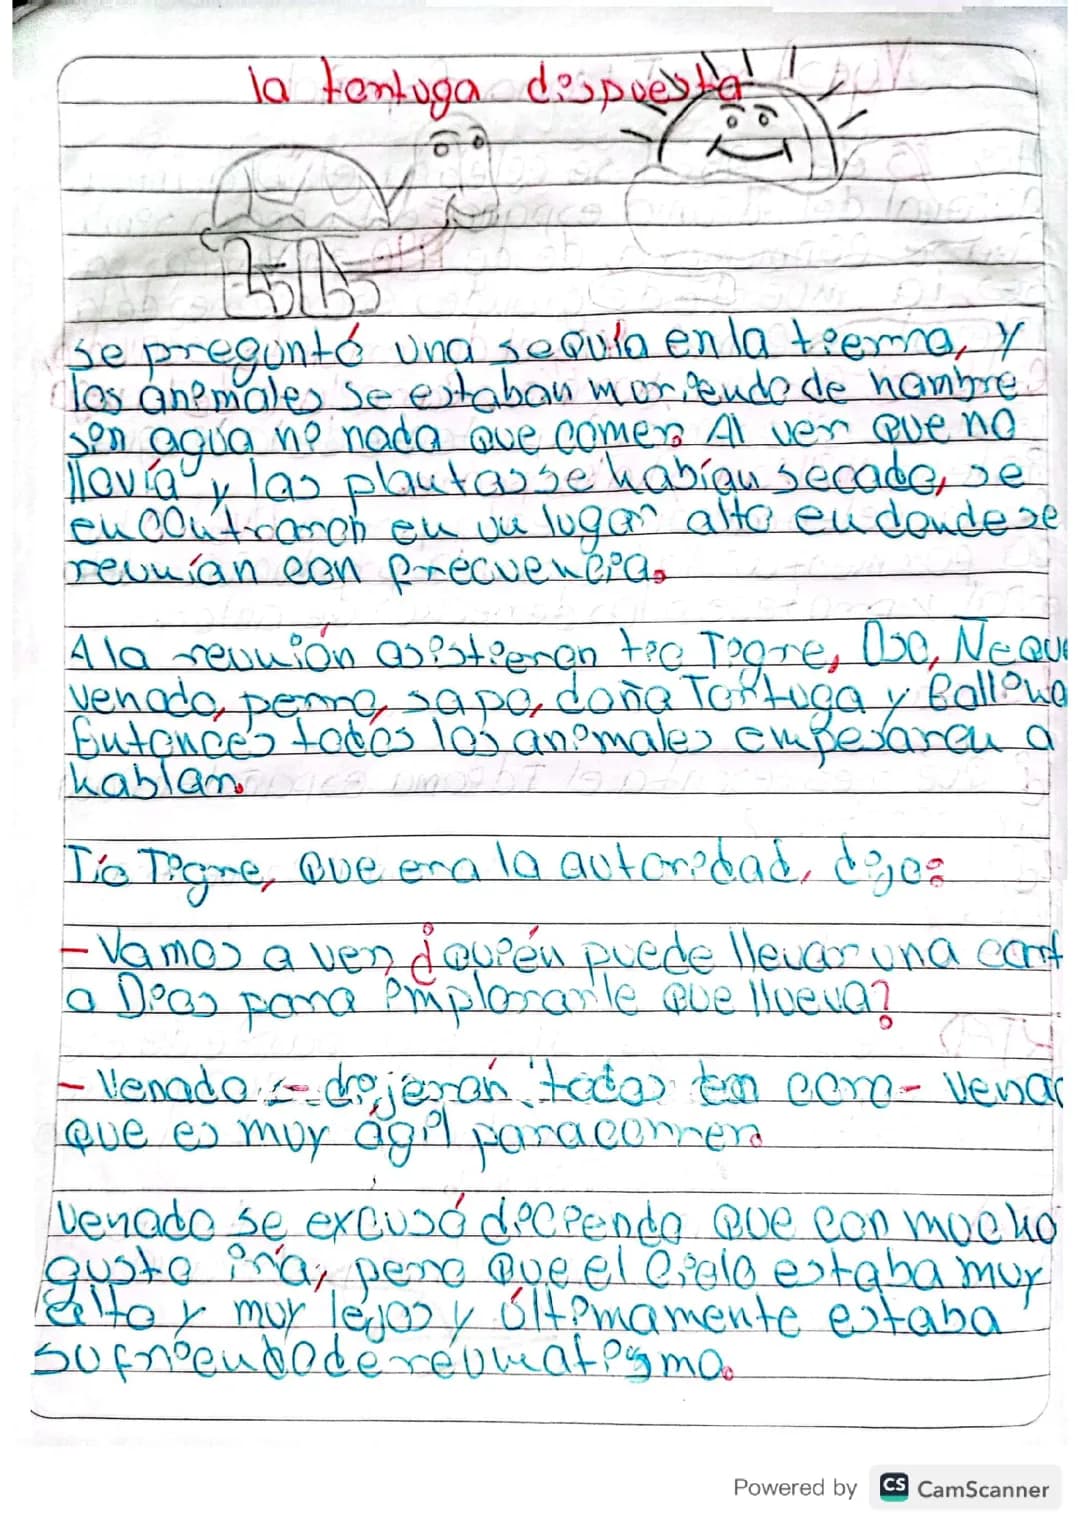 la tortuga dispuesta
se preguntó una sequía en la tierra, y
los animales se estaban moriendo de hambre
sin agua ni nada que comer. Al ver que no
llovía y las plantas se habían secado, se
encontraron en un lugar alto en donde se
reunían con frecuencia.
A la reunión asistieron tío Tigre, Oso, Ñeque
venado, perro, sapo, doña Tortuga y Gallina
Entonces todos los animales empesaron a
hablar.
Tío Tigre, que era la autoridad, dijo:
- Vamos a ver ¿quién puede llevar una cart
a Dios para implorarle que llueva?
- Venado - dijeron todos en coro - Vena
que es muy ágil para correr.
Venado se excusó diciendo que con mucho
gusto iría, pero que el cielo estaba muy
alto y muy lejos y últimamente estaba
sufriendo de reumatisma.
Powered by CS CamScanner